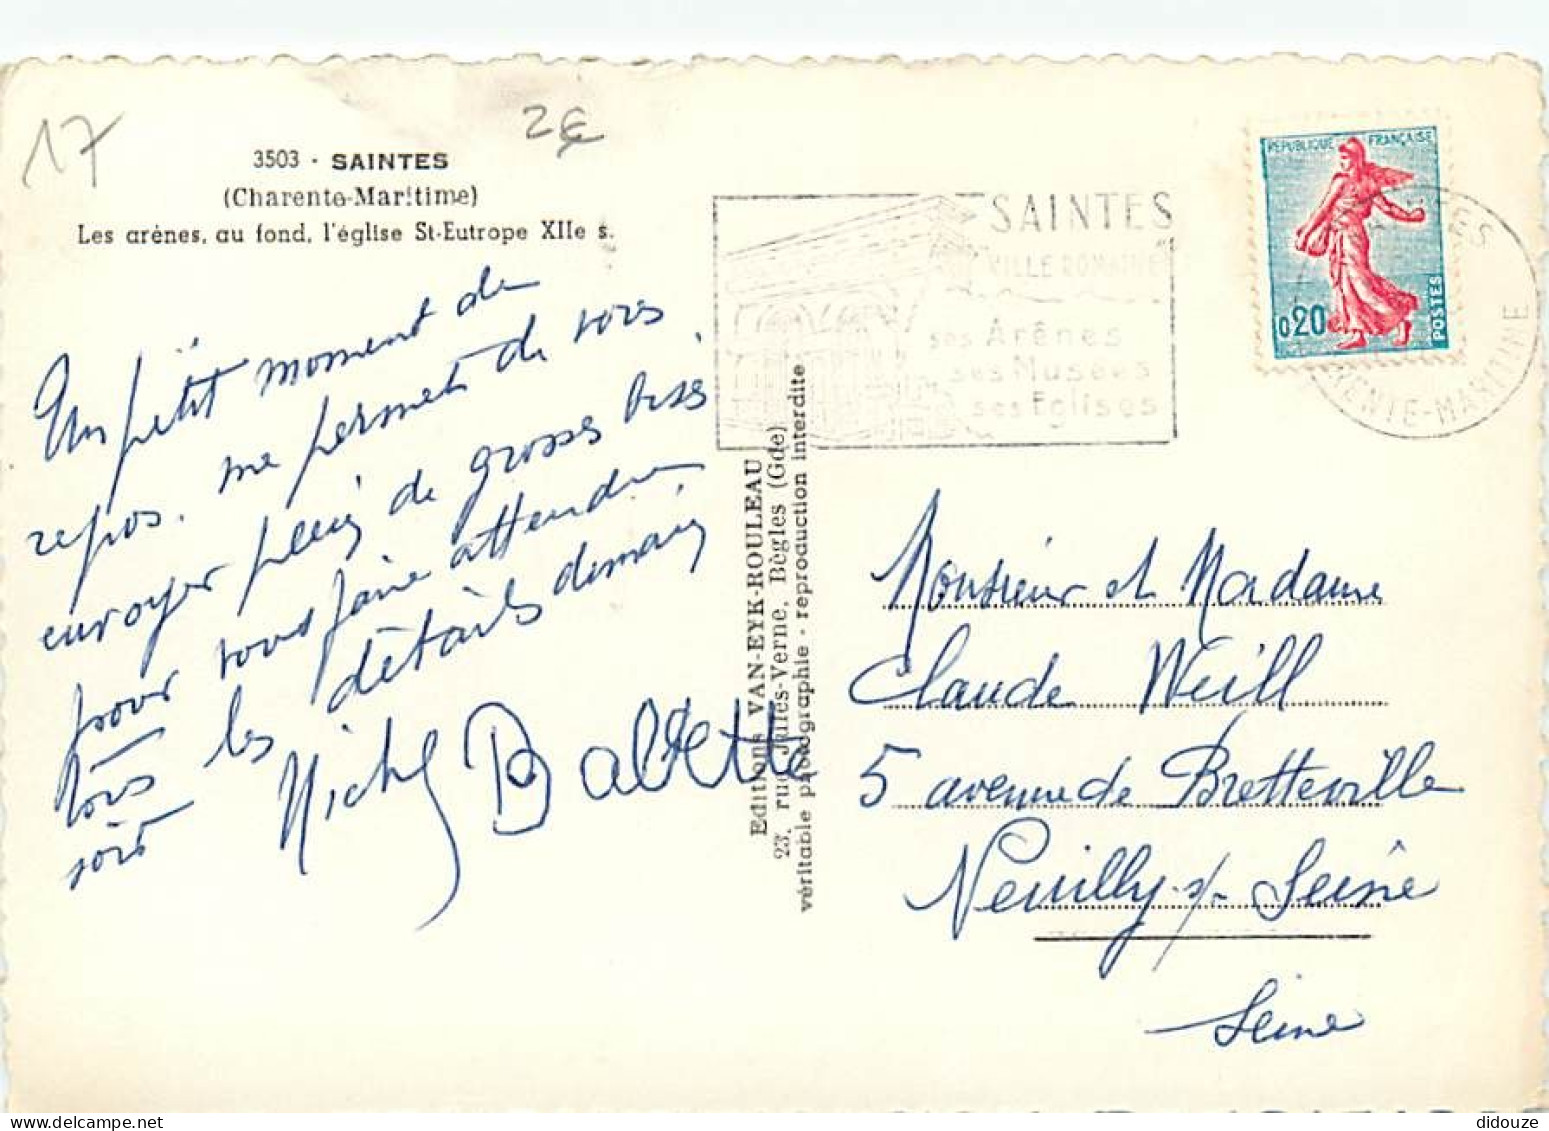 17
2€
3503 - SAINTES
(Charente-Maritime)
Les arènes, au fond, l'église St-Eutrope XIIe s.
Un petit moment de
repos. me permet de vous
envoyer plein de grosses bises
pour vous faire attendre
tous les détails demain
soir Michel Babette
Editions VAN-EYK-ROULEAU
23, rue Jules-Verne, Bègles (Gde)
véritable photographie - reproduction interdite
SAINTES
VILLE ROMAINE
ses Arênes
ses Musées
ses Eglises
REPUBLIQUE FRANÇAISE
0,20
POSTES
CHARENTE-MARITIME
Monsieur et Madame
Claude Weill
5 avenue de Bretteville
Neuilly s/- Seine
Seine
didouze